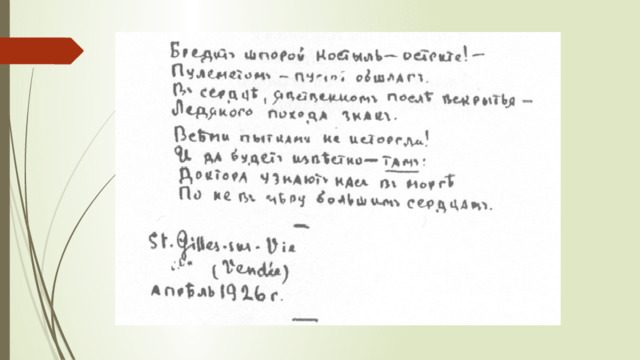 Бредитъ шпорой костыль — острите! —
Пулеметомъ — пустой обшлагъ.
Въ сердцѣ, явственномъ послѣ вскрытья —
Ледяного похода знакъ.
Всѣми пытками не исторгли!
И да будетъ извѣстно — тамъ:
Доктора узнаютъ насъ въ моргѣ
По не въ мѣру большимъ сердцамъ.
St. Gilles-sur-Vie
(Vendée)
Апрѣль 1926 г.